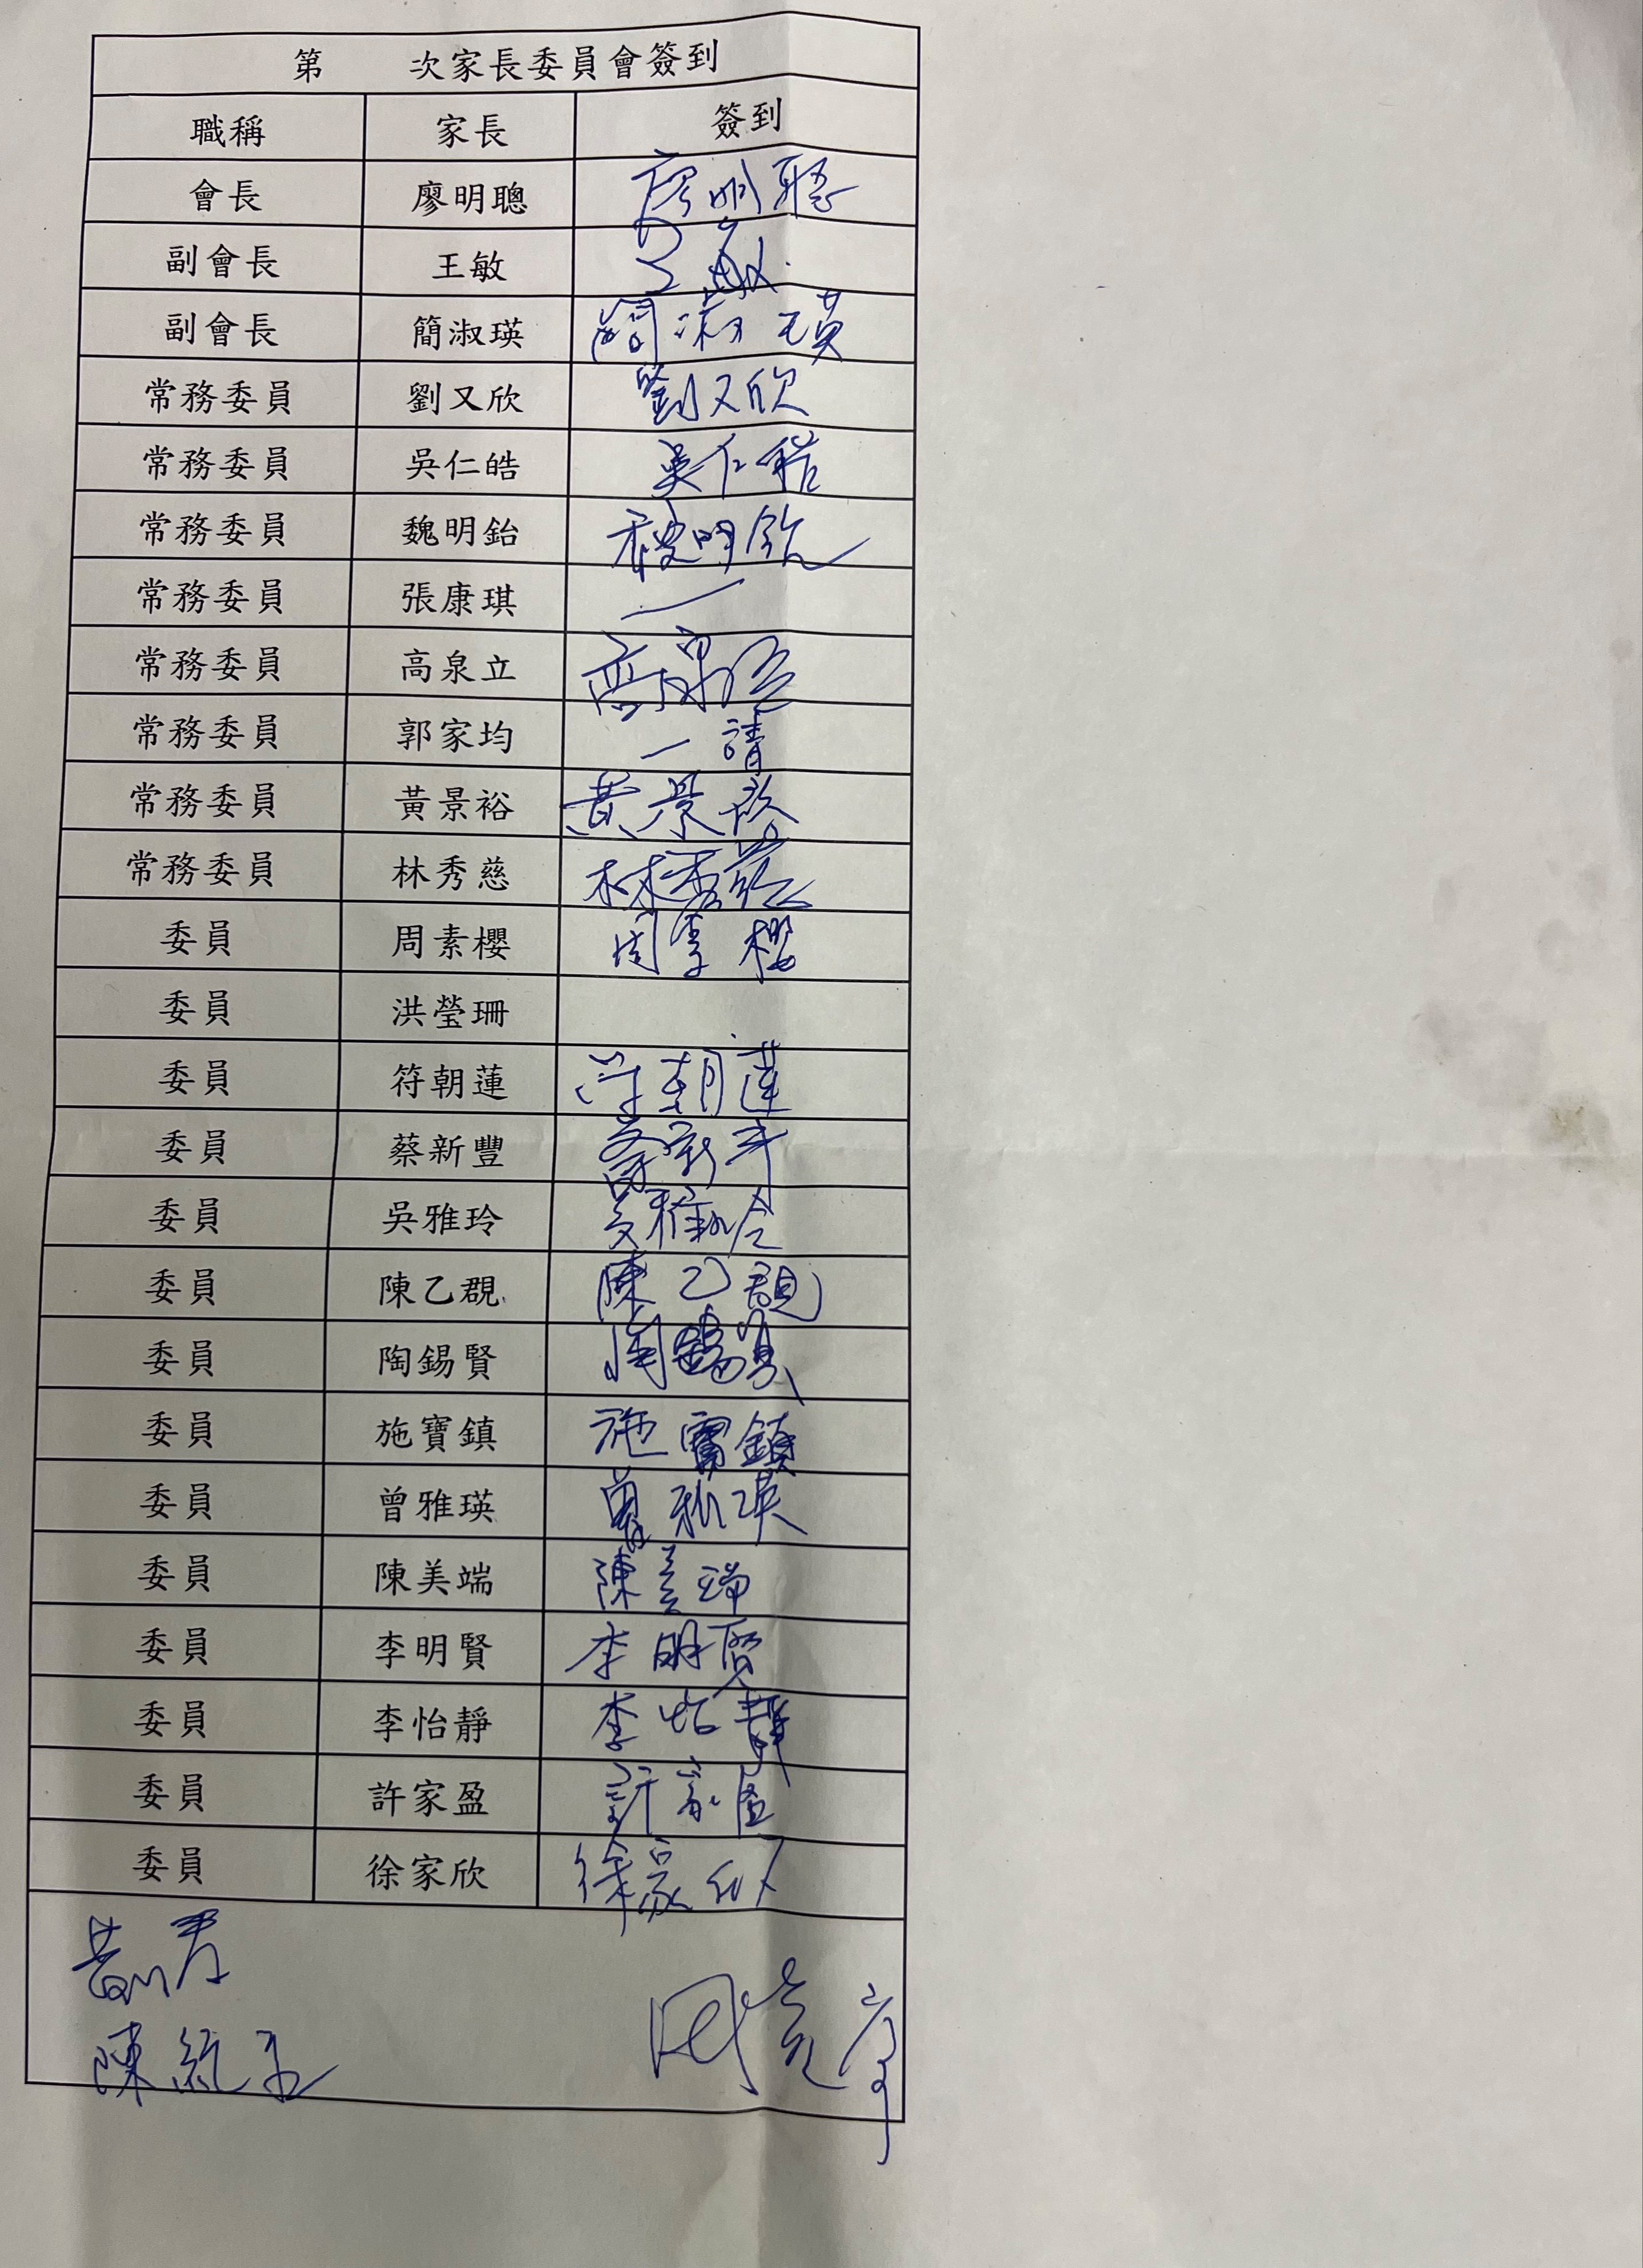 第　　次家長委員會簽到
職稱 家長 簽到
會長 廖明聰 廖明聰
副會長 王敏 王敏
副會長 簡淑瑛 簡淑瑛
常務委員 劉又欣 劉又欣
常務委員 吳仁皓 吳仁皓
常務委員 魏明鈶 魏明鈶
常務委員 張康琪
常務委員 高泉立 高泉立
常務委員 郭家均 請
常務委員 黃景裕 黃景裕
常務委員 林秀慈 林秀慈
委員 周素櫻 周素櫻
委員 洪瑩珊
委員 符朝蓮 符朝蓮
委員 蔡新豐 蔡新丰
委員 吳雅玲 吳雅玲
委員 陳乙覠 陳乙覠
委員 陶錫賢 陶錫賢
委員 施寶鎮 施寶鎮
委員 曾雅瑛 曾雅瑛
委員 陳美端 陳美端
委員 李明賢 李明賢
委員 李怡靜 李怡靜
委員 許家盈 許家盈
委員 徐家欣 徐家欣